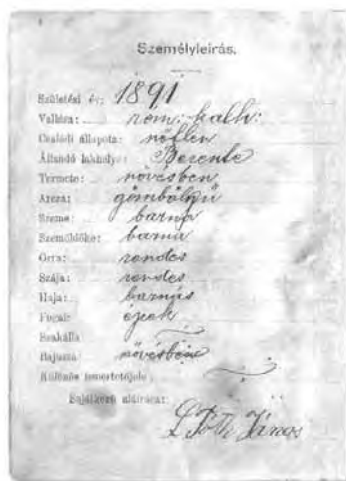 Személyleírás.
Születési év: 1891
Vallása: rom: kath:
Családi állapota: nőtlen
Állandó lakhelye: Berente
Termete: növésben
Arcza: gömbölyű
Szeme: barna
Szemöldöke: barna
Orra: rendes
Szája: rendes
Haja: barnás
Fogai: épek
Szakálla
Bajusza növésben
Különös ismertetőjele:
Sajátkezű aláírása:
L Tóth János